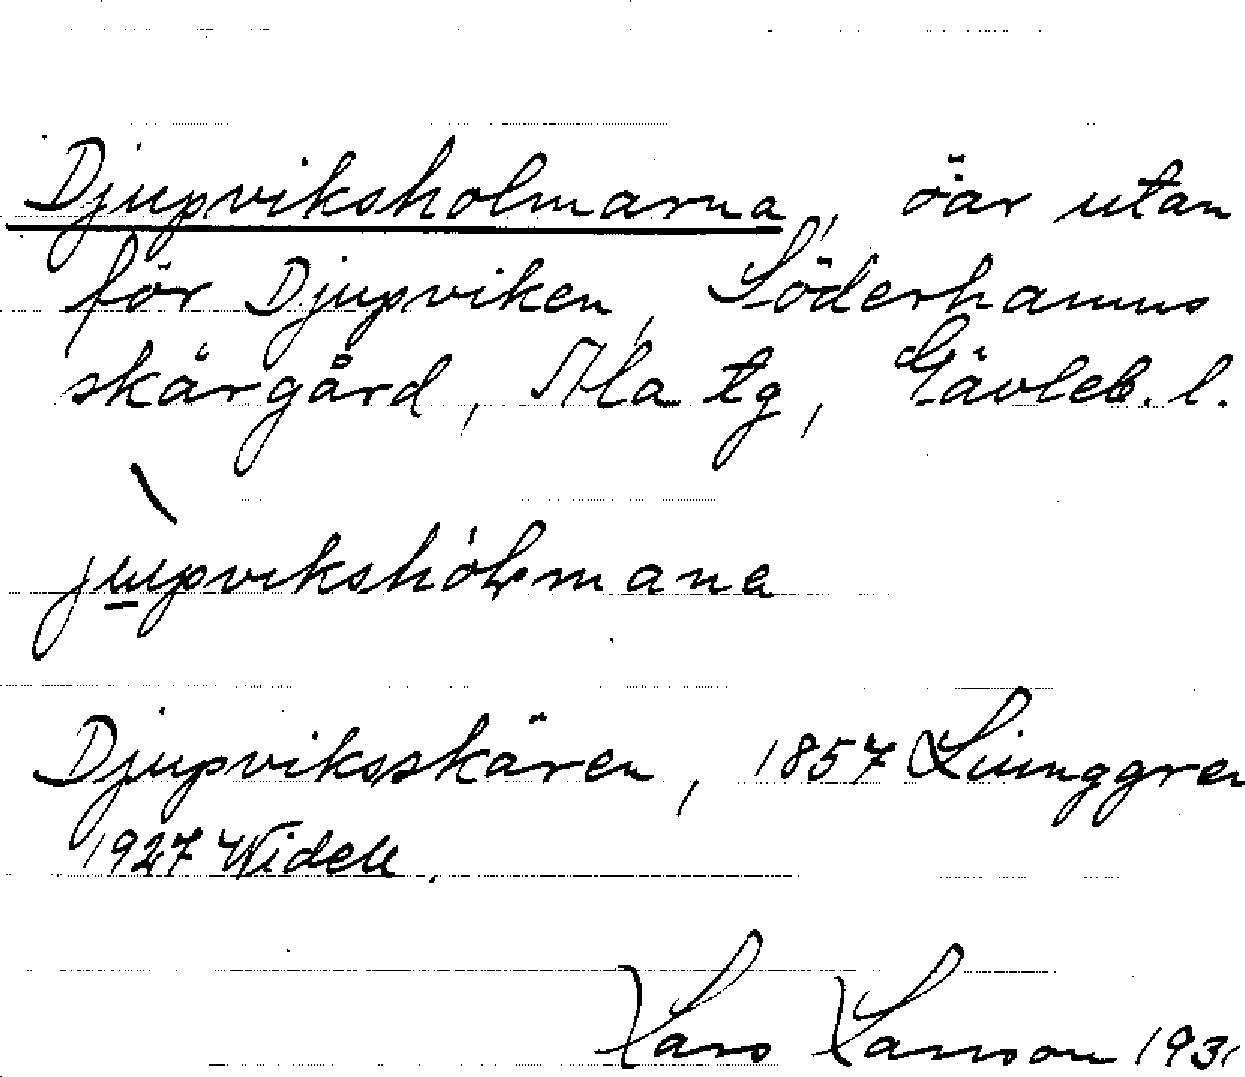 Djupviksholmarna, öar utan
för Djupviken, Söderhamns
skärgård, Ala tg, Gävleb. l.
Djupviksskären, 1857 Ljunggren
1927 Widell.
Lars Larsson